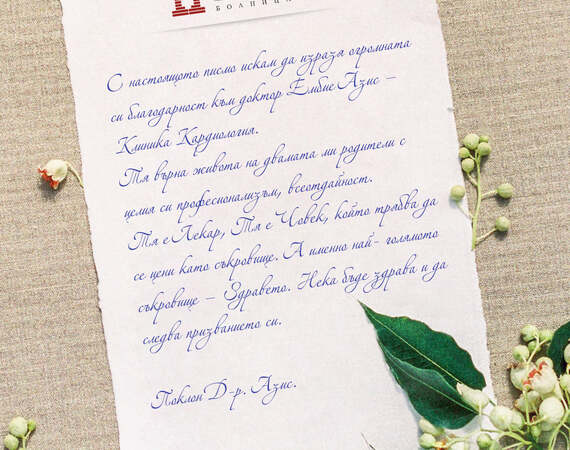 БОЛНИЦА
С настоящото писмо искам да изразя огромната
си благодарност към доктор Ембие Азис –
Клиника Кардиология.
Тя върна живота на двамата ми родители с
целия си професионализъм, всеотдайност.
Тя е Лекар, Тя е Човек, който трябва да
се цени като съкровище. А именно най- голямото
съкровище – Здравето. Нека бъде здрава и да
следва призванието си.
Поклон Д-р. Азис.